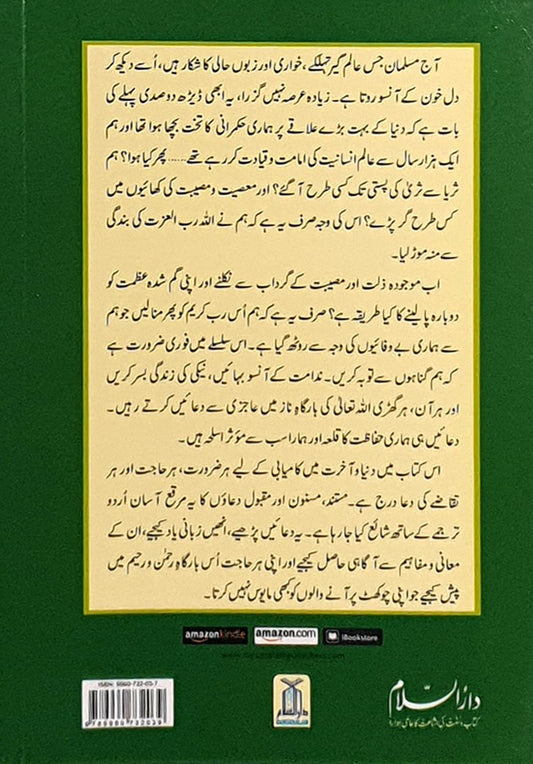 آج مسلمان جس عالم گیر تہلکے، خواری اور زبوں حالی کا شکار ہیں، اُسے دیکھ کر
دل خون کے آنسو روتا ہے۔ زیادہ عرصہ نہیں گزرا، یہ ابھی ڈیڑھ دو صدی پہلے کی
بات ہے کہ دنیا کے بہت بڑے علاقے پر ہماری حکمرانی کا تخت بچھا ہوا تھا اور ہم
ایک ہزار سال سے عالمِ انسانیت کی امامت و قیادت کر رہے تھے...... پھر کیا ہوا؟ ہم
ثریا سے ثریٰ کی پستی تک کسی طرح آ گئے؟ اور معصیت و مصیبت کی کھائیوں میں
کس طرح گر پڑے؟ اس کی وجہ صرف یہ ہے کہ ہم نے اللہ رب العزت کی بندگی
سے منہ موڑ لیا۔
اب موجودہ ذلت اور مصیبت کے گرداب سے نکلنے اور اپنی گم شدہ عظمت کو
دوبارہ پا لینے کا کیا طریقہ ہے؟ صرف یہ ہے کہ ہم اُس رب کریم کو پھر منا لیں جو ہم
سے ہماری بے وفائیوں کی وجہ سے روٹھ گیا ہے۔ اس سلسلے میں فوری ضرورت ہے
کہ ہم گناہوں سے توبہ کریں۔ ندامت کے آنسو بہائیں، نیکی کی زندگی بسر کریں
اور ہر آن، ہر گھڑی اللہ تعالیٰ کی بارگاہِ ناز میں عاجزی سے دعائیں کرتے رہیں۔
دعائیں ہی ہماری حفاظت کا قلعہ اور ہمارا سب سے مؤثر اسلحہ ہیں۔
اس کتاب میں دنیا و آخرت میں کامیابی کے لیے ہر ضرورت، ہر حاجت اور ہر
تقاضے کی دعا درج ہے۔ مستند، مسنون اور مقبول دعاؤں کا یہ مرقع آسان اُردو
ترجمے کے ساتھ شائع کیا جا رہا ہے۔ یہ دعائیں پڑھیے، انھیں زبانی یاد کیجیے، ان کے
معانی و مفاہیم سے آگاہی حاصل کیجیے اور اپنی ہر حاجت اُس بارگاہِ رحمٰن و رحیم میں
پیش کیجیے جو اپنی چوکھٹ پر آنے والوں کو کبھی مایوس نہیں کرتا۔
amazonkindle amazon.com iBookstore
دارُالسّلام
کتاب و سنت کی اشاعت کا عالمی ادارہ